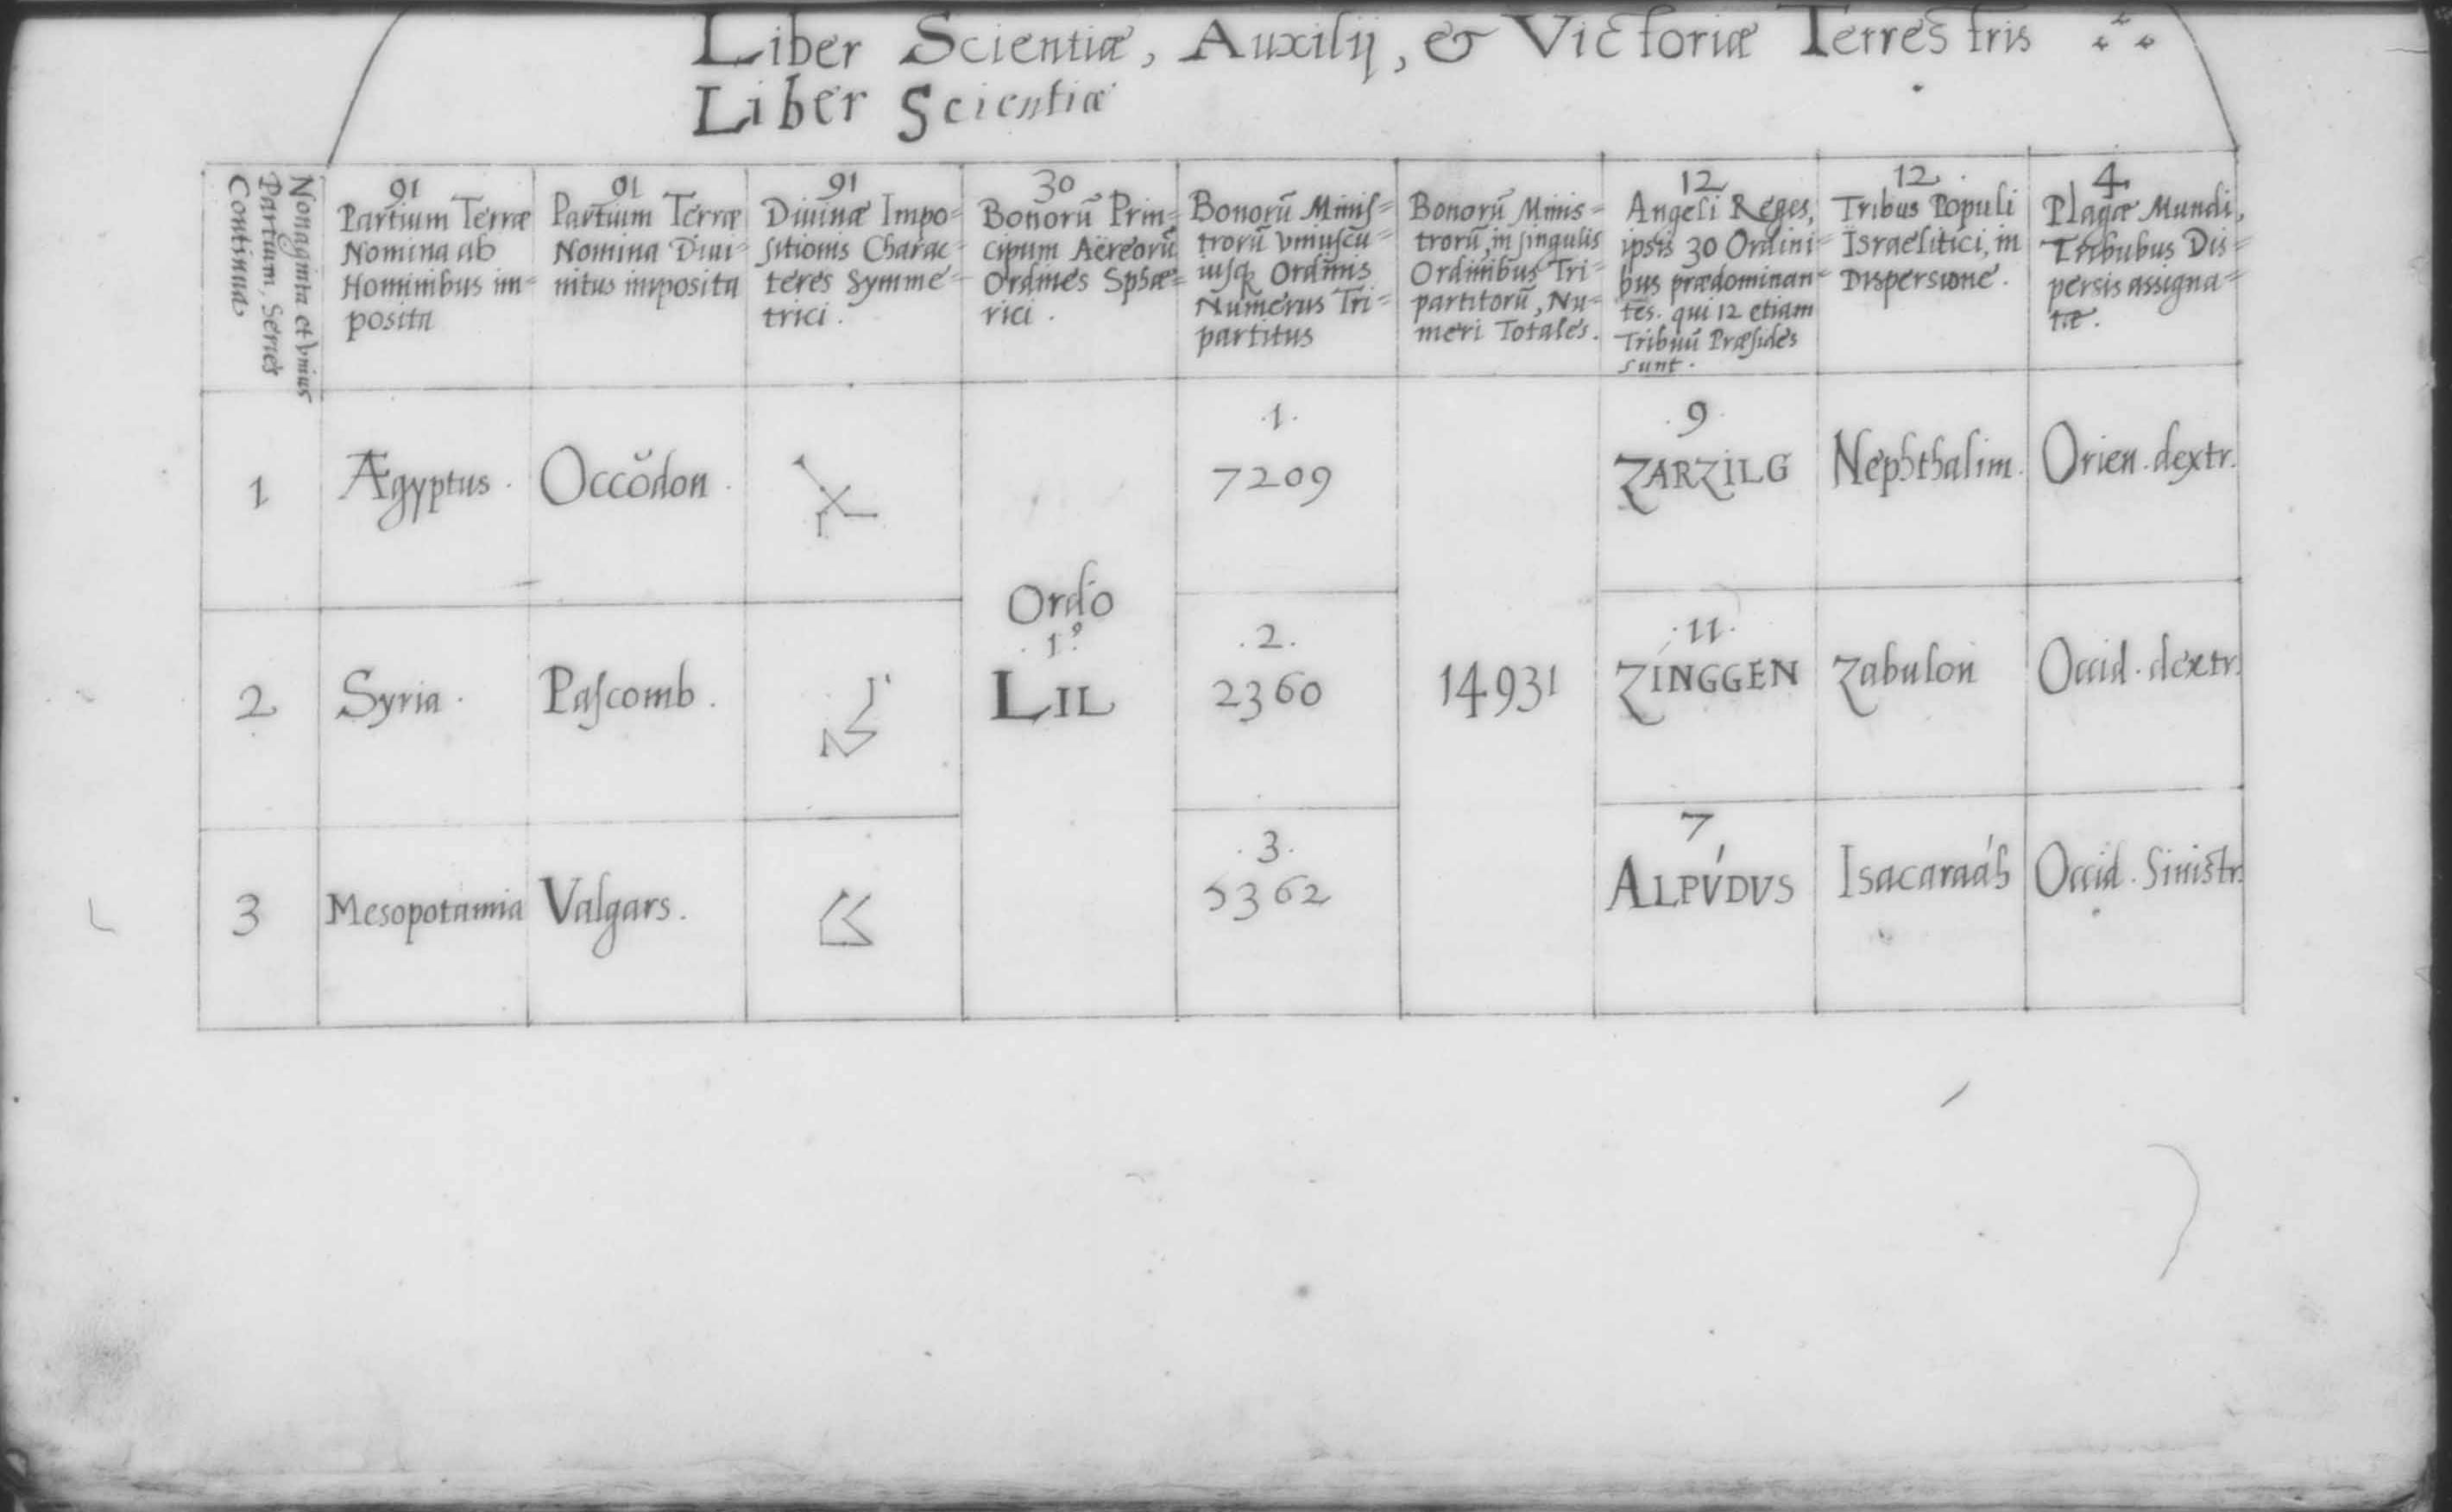 Liber Scientiæ, Auxilij, & Victoriæ Terrestris
Liber Scientiæ
Nonaginta et Vnius
Partium, Series
Continuæ
91
Partium Terræ
Nomina ab
Hominibus im=
posita
91
Partium Terræ
Nomina Diui=
nitus imposita
91
Diuinæ Impo=
sitionis Charac=
teres Symme=
trici.
30
Bonorū Prin=
cipum Aëreorū
Ordines Sphæ=
rici.
Bonorū Minis=
trorū vniuscu=
iusq Ordinis
Numerus Tri=
partitus
Bonorū Minis=
trorū, in singulis
Ordinibus Tri=
partitorū, Nu=
meri Totales.
12
Angeli Reges,
ipsis 30 Ordini=
bus prædominan=
tes. qui 12 etiam
Tribuū Præsides
sunt.
12.
Tribus Populi
Israelitici, in
Dispersione.
4
Plagæ Mundi,
Tribubus Dis=
persis assigna=
tæ.
1
Ægyptus.
Occŏdon.
.1.
7209
.9.
ZARZILG
Nephthalim.
Orien. dextr.
Ordo
.1.º
LIL
2
Syria.
Pascomb.
.2.
2360
14931
.11.
ZINGGEN
Zabulon
Occid. dextr.
3
Mesopotamia
Valgars.
.3.
5362
7
ALPÚDVS
Isacaraáh
Occid. Sinistr.